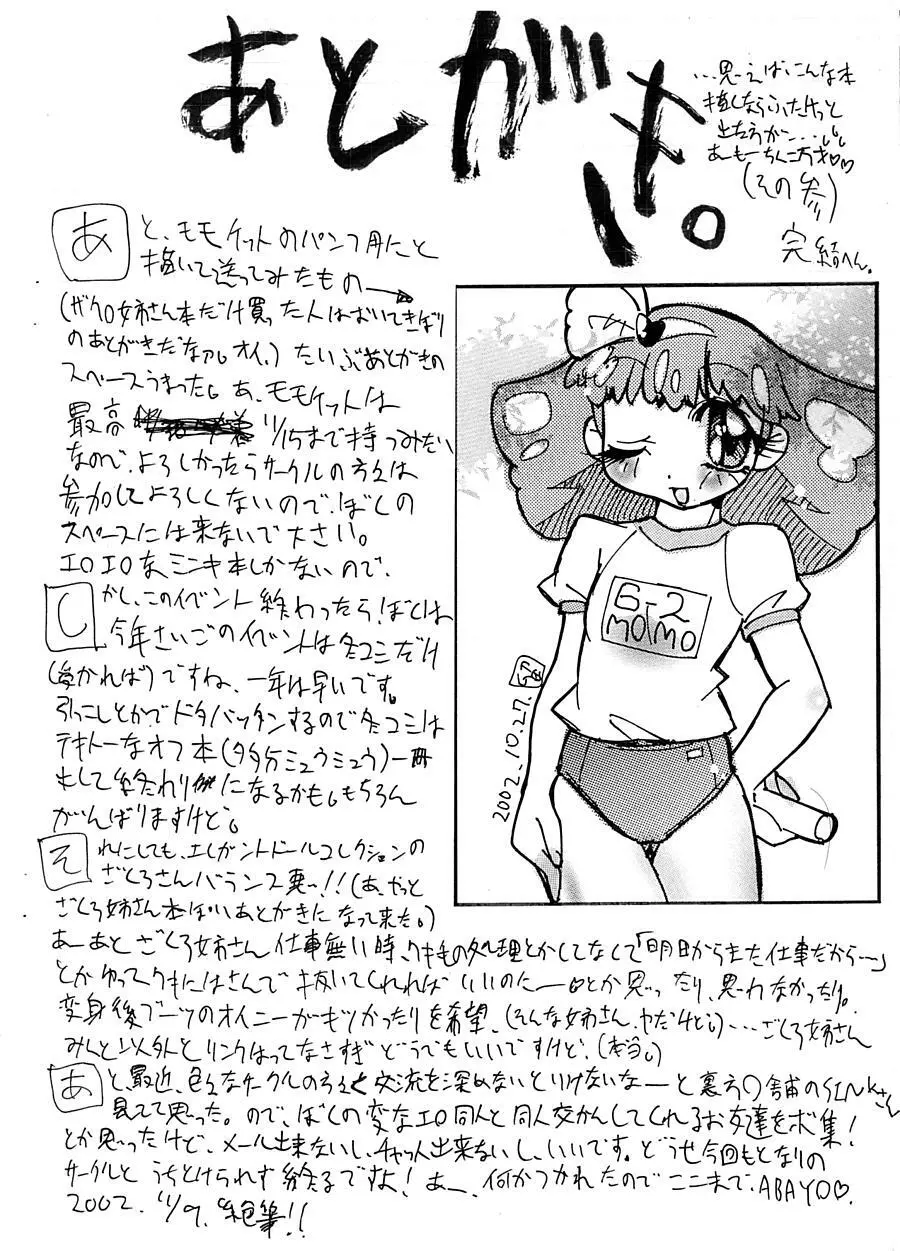 あとがき。
…思えばこんな本
描くならふたけっと
出たろうか…
あーもーちんこ万才♡♡
(その参)
完結へん。
あと、モモケットのパンフ用にと
描いて送ってみたもの→
(ザクロ姉さん本だけ買った人はおいてきぼり
のあとがきだなァ。オイ。) だいぶあとがきの
スペースうまった。あ、モモケットは
最高 11/15まで持つみたい
なので、よろしかったらサークルの方々は
参加してよろしくないので、ぼくの
スペースには来ないで下さい。
エロエロなミンキ本しかないので、
しかし、このイベント終わったら、ぼくは
今年さいごのイベントは冬コミだけ
(受かれば)ですね、一年は早いです。
引っこしとかでドタバッタンするので冬コミは
テキトーなオフ本(多分ミュウミュウ)一冊
出して終わりになるかも。もちろん
がんばりますけど。
それにしても、エレガントドールコレクションの
ざくろさんバランス悪っ!!(あ、やっと
ざくろ姉さん本ぽいあとがきになって来た。)
あーあとざくろ姉さん仕事無い時、ワキ毛の処理とかしてなくて「明日からまた仕事だから…」
とかゆってワキにはさんで抜いてくれればいいのにーとか思ったり、思わなかったり。
変身後ブーツのオイニーがキツかったりを希望、(そんな姉さん、ヤだけど)…ざくろ姉さん
みんと以外とリンクはってなさすぎどうでもいいですけど、(本当。)
あと、最近、色々なサークルの方々と交流を深めないといけないなーと裏方〇舗のSINKさん
見てて思った。ので、ぼくの変なエロ同人と同人交かんしてくれるお友達をボ集!
とか思ったけど、メール出来ないし、チャット出来ないし、いいです。どうせ今回もとなりの
サークルと うちとけられず終るですよ! あー、何かつかれたのでここまで、ABAYO♡.
2002. 11/9. 絶筆!!
6-2
MOMO
2002.10.27.